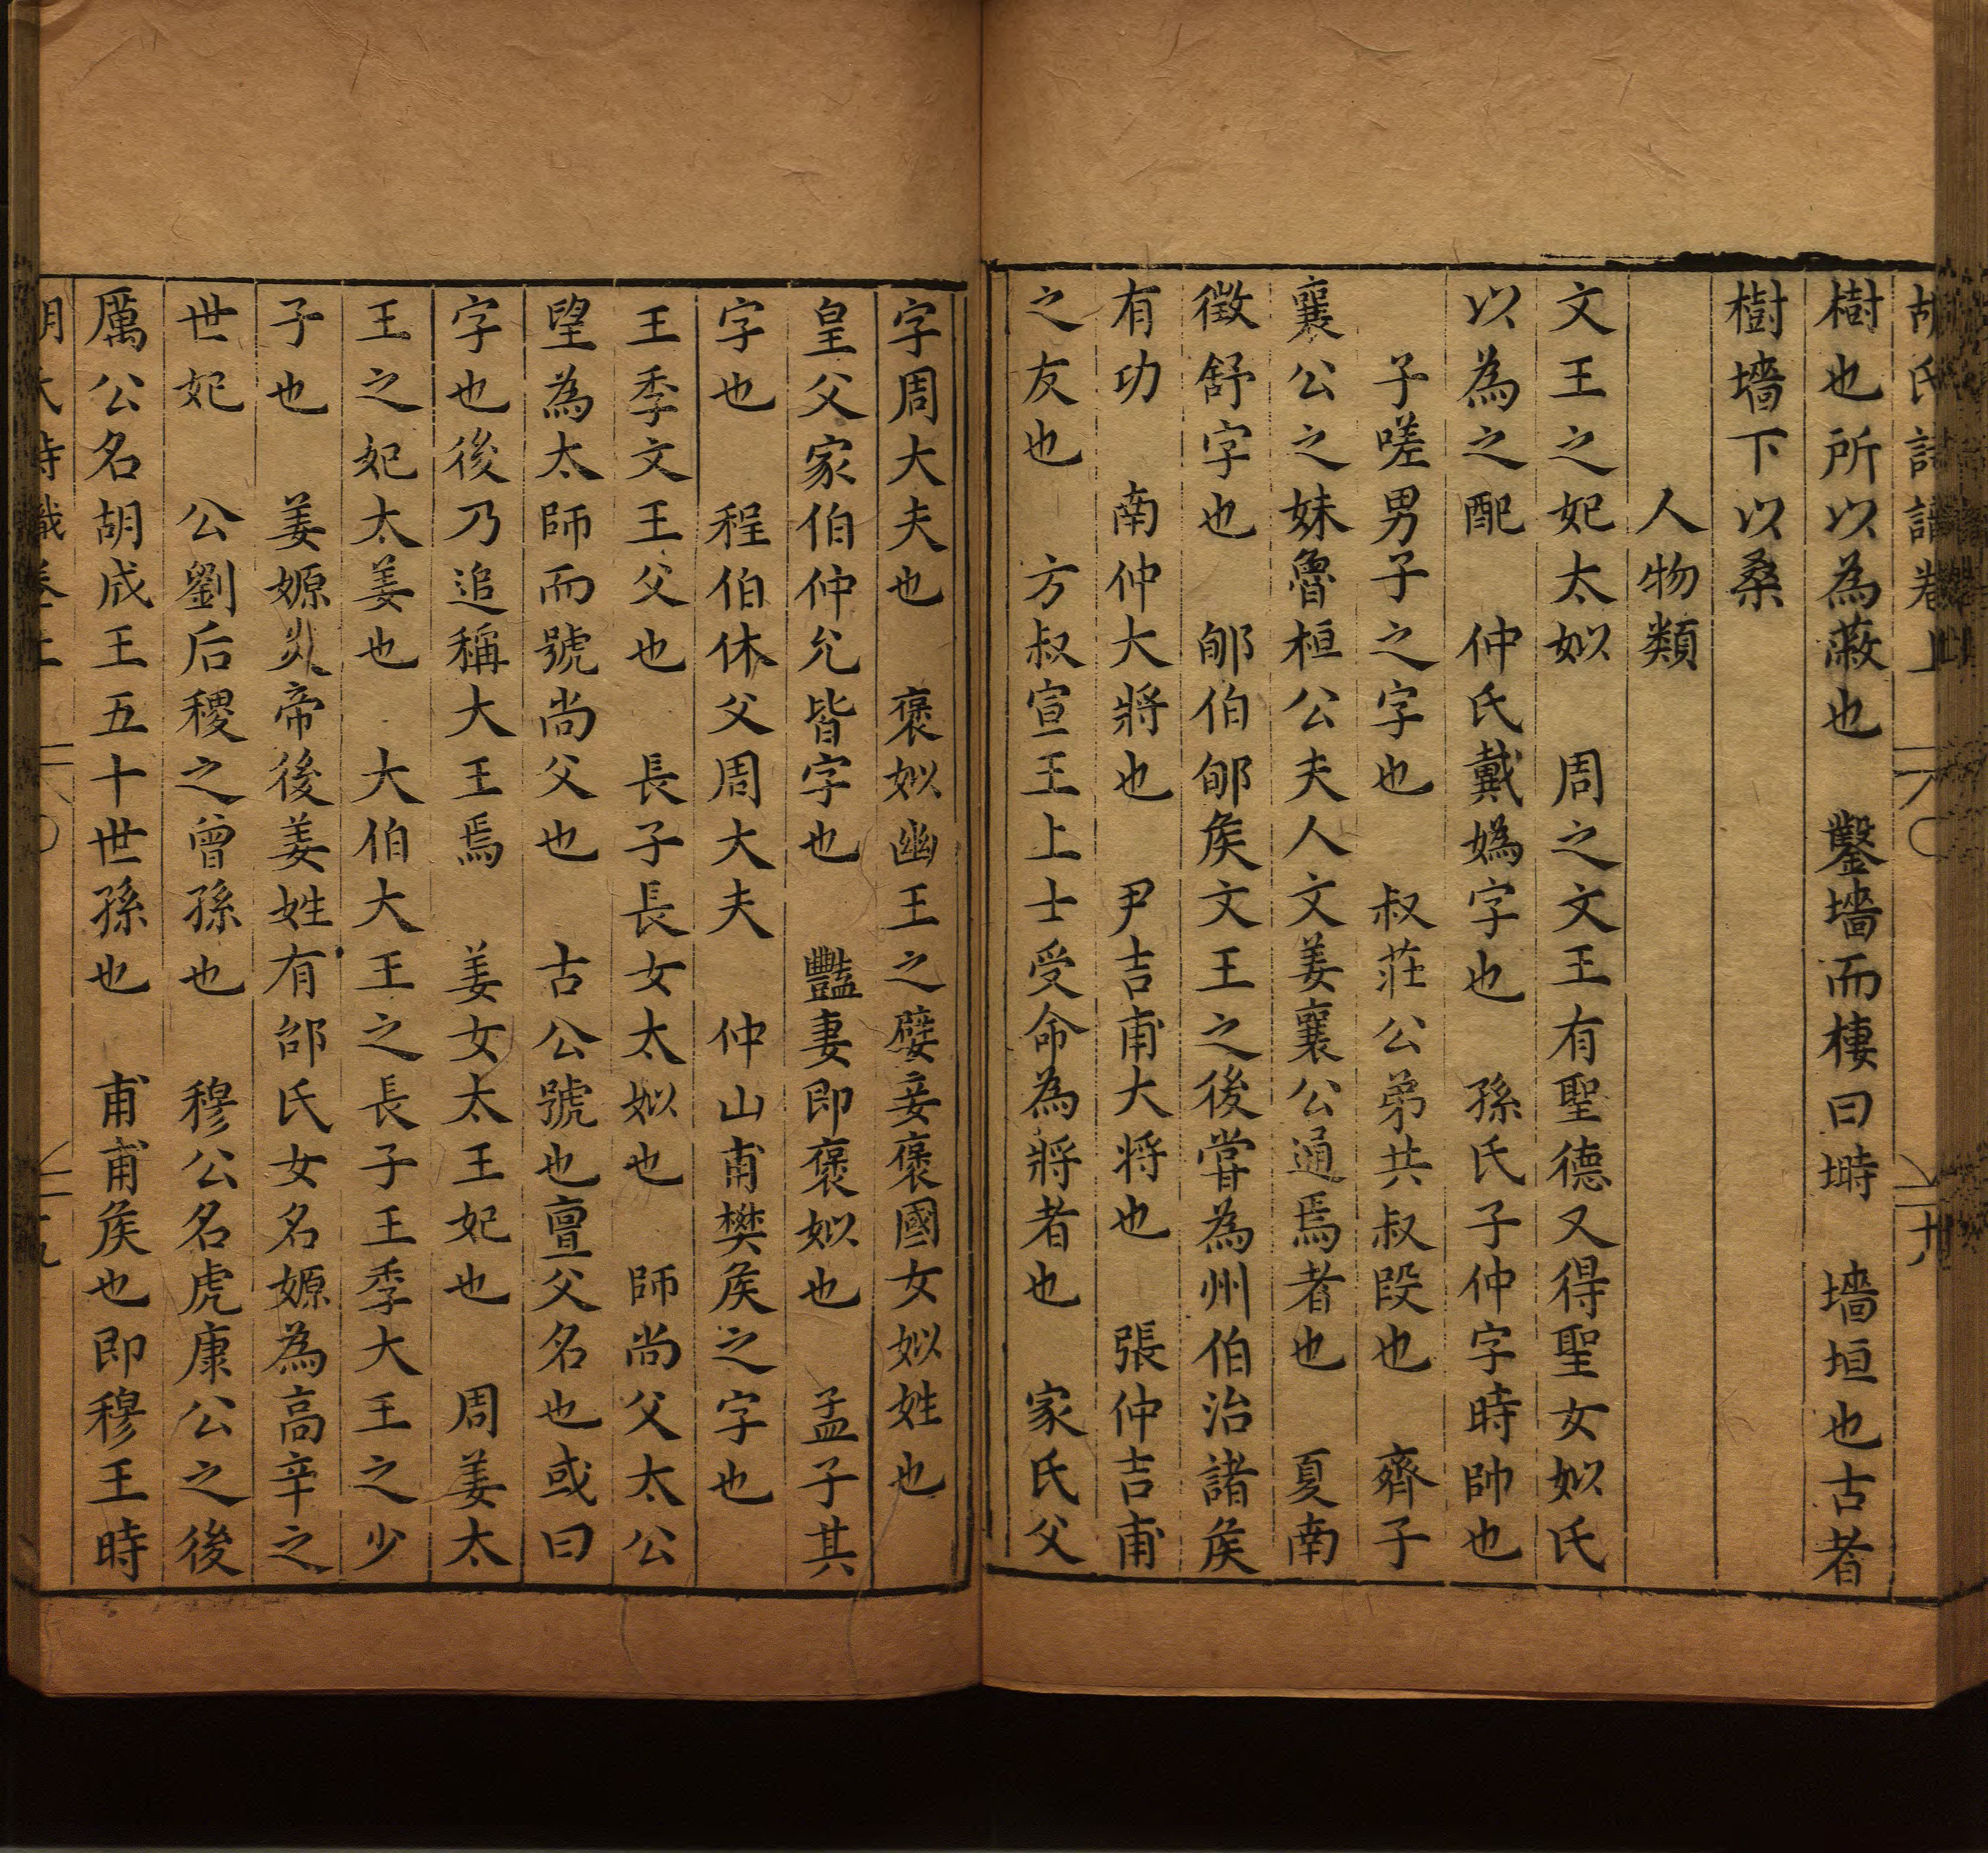 樹也所以為蔽也　鑿墻而棲曰塒　墻垣也古者
樹墻下以桑
人物類
文王之妃太姒　周之文王有聖德又得聖女姒氏
以為之配　仲氏戴媯字也　孫氏子仲字時帥也
子嗟男子之字也　叔莊公弟共叔段也　齊子
襄公之妹魯桓公夫人文姜襄公通焉者也　夏南
徵舒字也　郇伯郇矦文王之後甞為州伯治諸矦
有功　南仲大將也　尹吉甫大將也　張仲吉甫
之友也　方叔宣王上士受命為將者也　家氏父
字周大夫也　褒姒幽王之嬖妾褒國女姒姓也
皇父家伯仲允皆字也　豔妻即褒姒也　孟子其
字也　程伯休父周大夫　仲山甫樊矦之字也
王季文王父也　長子長女太姒也　師尚父太公
望為太師而號尚父也　古公號也亶父名也或曰
字也後乃追稱大王焉　姜女太王妃也　周姜太
王之妃太姜也　大伯大王之長子王季大王之少
子也　姜嫄炎帝後姜姓有邰氏女名嫄為高辛之
世妃　公劉后稷之曾孫也　穆公名虎康公之後
厲公名胡成王五十世孫也　甫甫矦也即穆王時